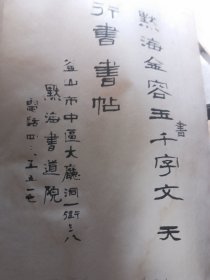 默海金容五千字文 天
書
行書 書帖
釜山市中區大廳洞一街三八
默海書道院
電話 四二、五五一七